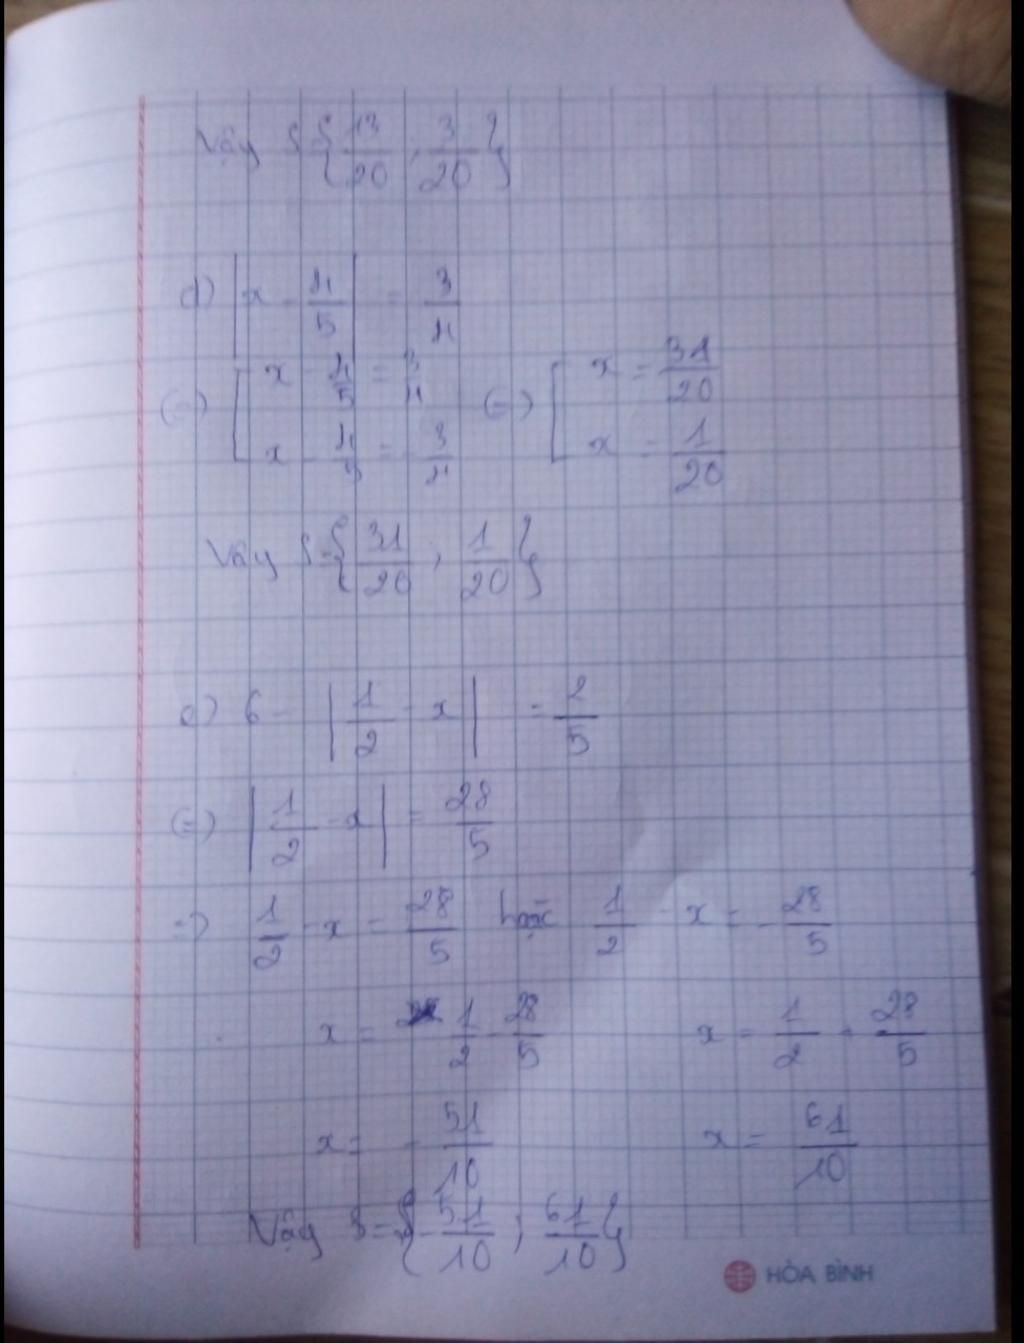 Vậy S = { 13/20 ; 3/20 }
d) | x - 4/5 | = 3/4
(=) [ x - 4/5 = 3/4 (=) [ x = 31/20
x - 4/5 = - 3/4 x = 1/20
Vậy S = { 31/20 ; 1/20 }
e) 6 - | 1/2 - x | = 2/5
(=) | 1/2 - x | = 28/5
=) 1/2 - x = 28/5 hoặc 1/2 - x = - 28/5
x = 1/2 - 28/5 x = 1/2 + 28/5
x = - 51/10 x = 61/10
Vậy S = { - 51/10 ; 61/10 }
HÒA BÌNH